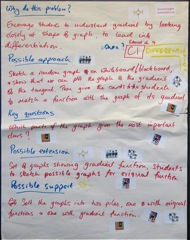 Why do this problem?
Encourage students to understand gradient by looking
closely at shape of graph to lead into
differentiation.
Possible approach
Sketch a random graph on whiteboard/blackboard
+ show that we can plot the graph & the gradient
of the tangent. Then give the cards & ask students
to match a function with the graph of its gradient
Key questions
Which parts of the graph give the most important
clues?
Possible extension
Set of graphs showing gradient function, students
to sketch possible graphs for original function
Possible support
Sort the graphs into two piles, one with original
functions + one with gradient function.